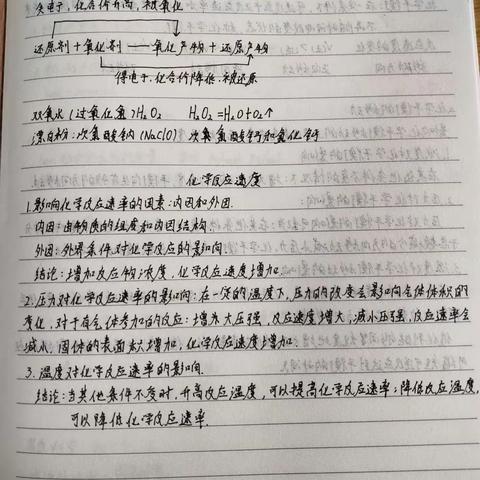 失电子，化合价升高，被氧化
还原剂+氧化剂——氧化产物+还原产物
得电子.化合价降低.被还原
双氧水(过氧化氢)H₂O₂ H₂O₂=H₂O+O₂↑
漂白粉:次氯酸钠(NaClO) 次氯酸钙和氯化钙
化学反应速度
1.影响化学反应速率的因素:内因和外因.
内因:由物质的组成和内因结构.
外因:外界条件对化学反应的影响
结论:增加反应物浓度,化学反应速度增加.
2.压力对化学反应速率的影响:在一定的温度下,压力的改变会影响气体体积的
变化,对于有气体参加的反应:增大压强,反应速度增大,减小压强,反应速率会
减小.固体的表面积增加,化学反应速度增加.
3.温度对化学反应速率的影响.
结论:当其他条件不变时,升高反应温度,可以提高化学反应速率;降低反应温度,
可以降低化学反应速率.